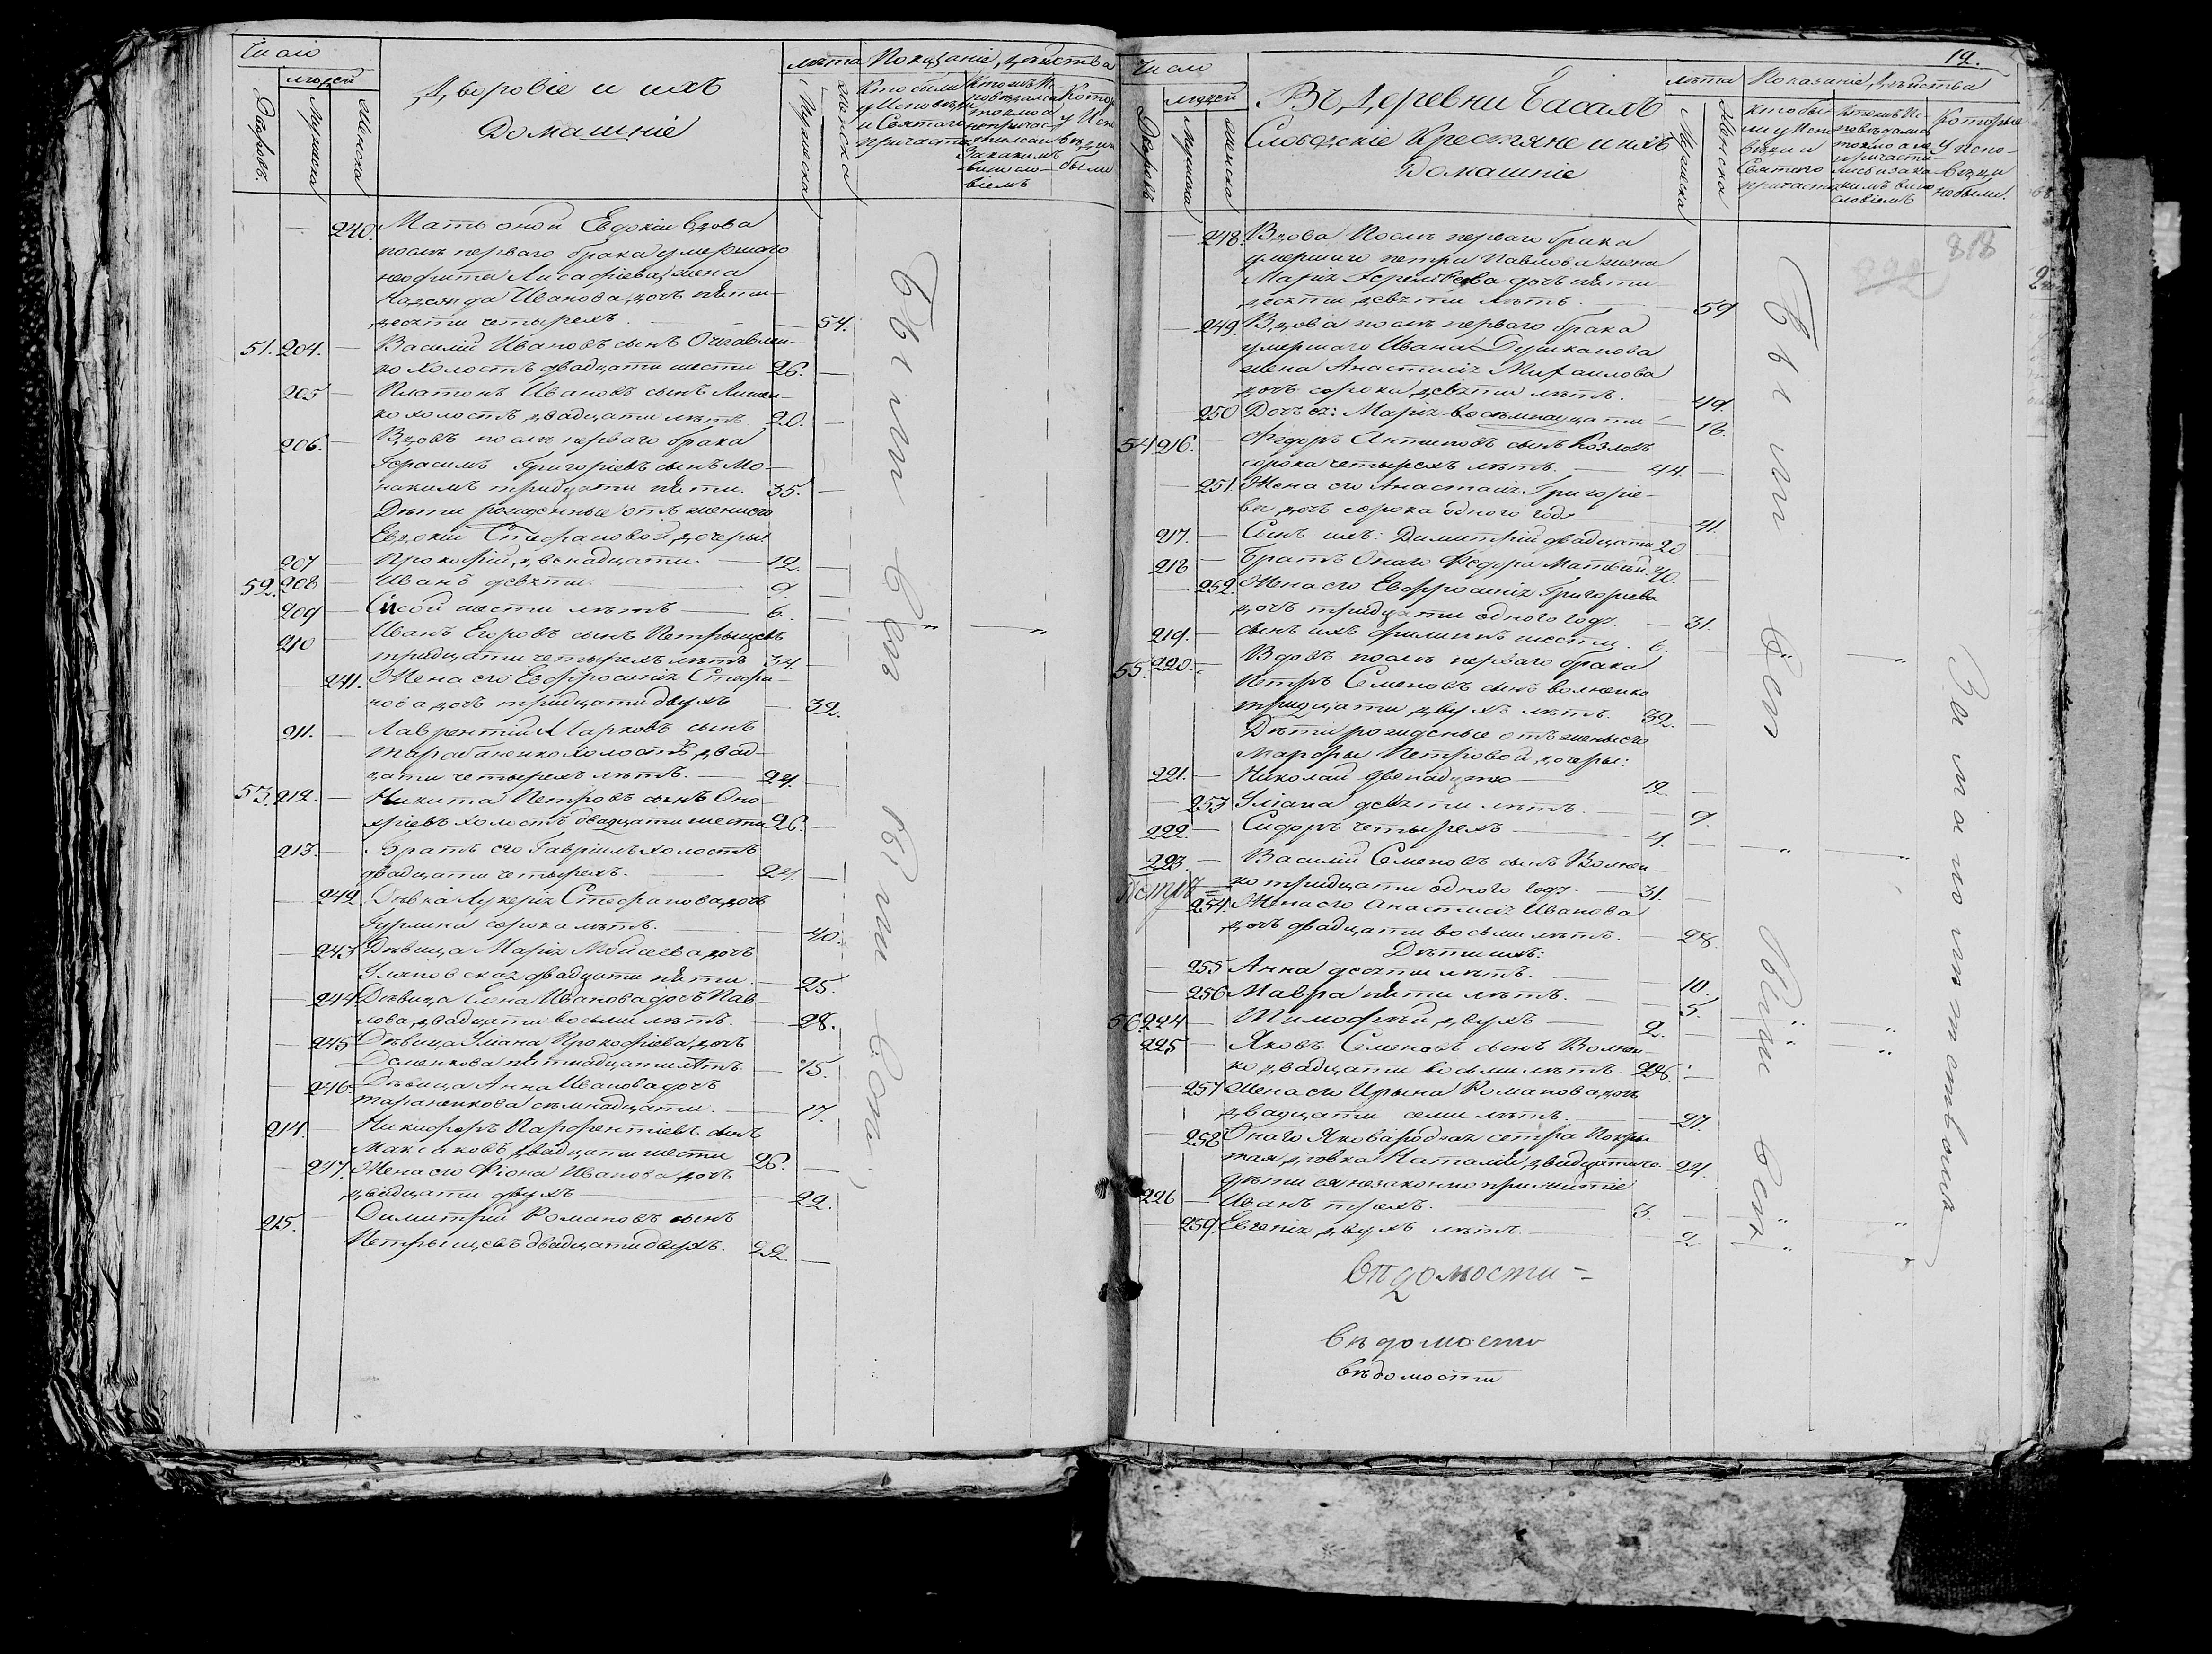 Число
людей
Дворовъ.
Мужеска
Женска
Дворовіе и ихъ
Домашніе
лѣта
Мужеска
Женска
Показаніе дѣйства
Кто были
у Исповѣди
и Святаго
причастія
240. Мать оной Евдокіи вдова
послѣ перваго брака умершаго
жена
Ивановa дочь пяти-
десяти четырехъ. 54.
51. 204. Василій Ивановъ сынъ
ко холостъ двадцати шести 26.
205 Платонъ Ивановъ сынъ
ко холостъ двадцати лѣтъ. 20.
206. Вдовъ послѣ перваго брака
Герасимъ Григоріевъ сынъ Мо-
накимъ тридцати пяти. 35.
Дѣти рожденные отъ жены его
Евдокіи Стефановой дочеры:
207 Прокофій двенадцати 12.
52. 208 Иванъ девяти 9
209 Сисой шести лѣтъ 6.
210 Иванъ Егоровъ сынъ Петрыщевъ
тридцати четырехъ лѣтъ 34.
241. Жена его Евфросинія Стефа-
нова дочь тридцати двухъ 32.
211. Лаврентій Марковъ сынъ
Тараненко холостъ двад-
цати четырехъ лѣтъ. 24.
53. 212. Никита Петровъ сынъ Оно-
хріевъ холостъ двадцати шести 26.
213. Братъ его Гавріилъ холостъ
двадцати четырехъ. 24.
242 Дѣвка Лукерія Стефанова дочь
Гурлина сорока лѣтъ. 40.
243 Дѣвица Марія Мойсеева дочь
двадцати пяти. 25.
244 Дѣвица Елена Иванова дочь Пав-
лова двадцати восьми лѣтъ. 28.
245 Дѣвица Уліана Прокофіева дочь
Деменкова пятнадцати лѣтъ 15.
246. Дѣвица Анна Иванова дочь
Тараненкова семнадцати. 17.
214. Никифоръ Парфентіевъ сынъ
Максиковъ двадцати шести 26.
247. Жена его Фіона Иванова дочь
двадцати двухъ 22.
215. Димитрій Романовъ сынъ
Петрыщевъ двадцати двухъ. 22.
Были Сей
Были Сей
19.
Число
людей
Дворовъ
Мужеска
Женска
Въ деревни Басахъ
Слобожскіе Крестяне и ихъ
Домашніе
лѣта
Мужеска
Женска
Показаніе дѣйства
Кто бы-
ли у Испо-
вѣди и
Святаго
причаст.
Которые
у испо-
вѣди
небыли.
818
248. Вдова послѣ перваго брака
умершаго петра Павлова жена
Марія дочь пяти-
десяти девяти лѣтъ. 59
249. Вдова послѣ перваго брака
умершаго Ивана Душканова
жена Анастасія Михаилова
дочь сорока девяти лѣтъ. 49.
250 Дочь ея: Марія восемнадцати 18.
54 216. Фѣдоръ Антиповъ сынъ Козловъ
сорока четырехъ лѣтъ. 44.
251. Жена его Анастасія Григоріе-
ва дочь сорока одного года 41.
217. Сынъ ихъ: Димитрій двадцати 20.
218 Братъ Онаго Федора Матвѣй. 40.
252. Жена его Евфросинія Григоріева
дочь тридцати одного года. 31.
219. сынъ ихъ филиппъ шести 6.
55. 220. Вдовъ послѣ перваго брака
Петръ Семеновъ сынъ волненко
тридцати двухъ лѣтъ. 32.
Дѣти рожденые отъ жены его
Марфы Петровой дочеры:
221. Николай двенадцати 12.
253 Уліана девяти лѣтъ. 9.
222. Сидоръ четырехъ 4.
223 Василій Семеновъ сынъ Волнен-
ко тридцати одного года. 31.
254. Жена его Анастасія Иванова
дочь двадцати восьми лѣтъ. 28.
Дѣти ихъ:
255 Анна десяти лѣтъ. 10.
256 Мавра пяти лѣтъ. 5.
56 224 Тимофѣй двухъ 2.
225 Яковъ Семеновъ сынъ Волнен-
ко двадцати восьми лѣтъ. 28.
257 Жена его Ирына Романова дочь
двадцати семи лѣтъ. 27.
258 Онаго Якова родная сестра Покры-
тая дѣвка Наталія двадцати че. 24.
дѣти ея незаконно прижитіе
226 Иванъ трехъ. 3.
259. Евгенія двухъ лѣтъ. 2
Были Сей
Были Сей
За малолѣтствомъ
Вѣдомости
Вѣдомость
Вѣдомости